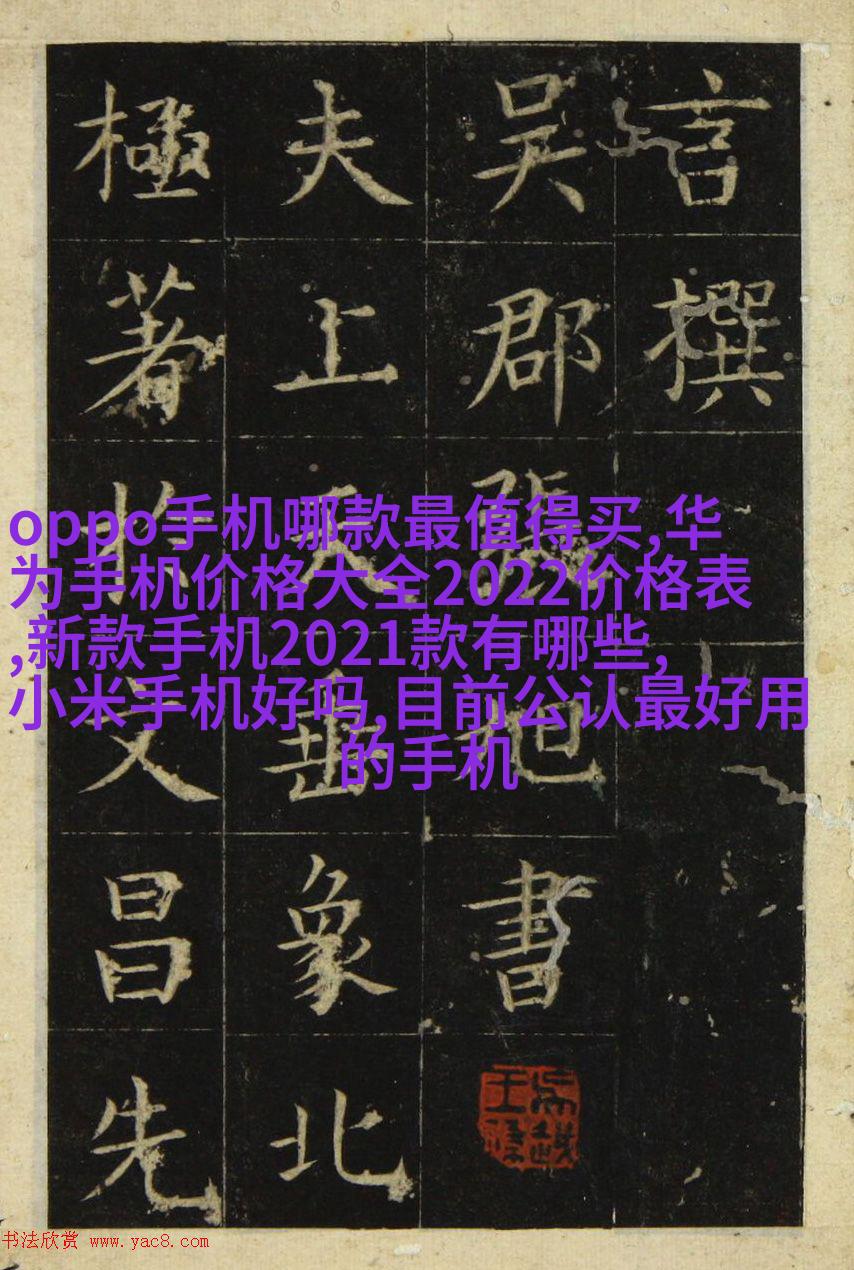 言撰
吴郡張書
夫上天垂象北
極著於文昌先
oppo手机哪款最值得买,华
为手机价格大全2022价格表
,新款手机2021款有哪些,
小米手机好吗,目前公认最好用
的手机
书法欣赏 www.yac8.com